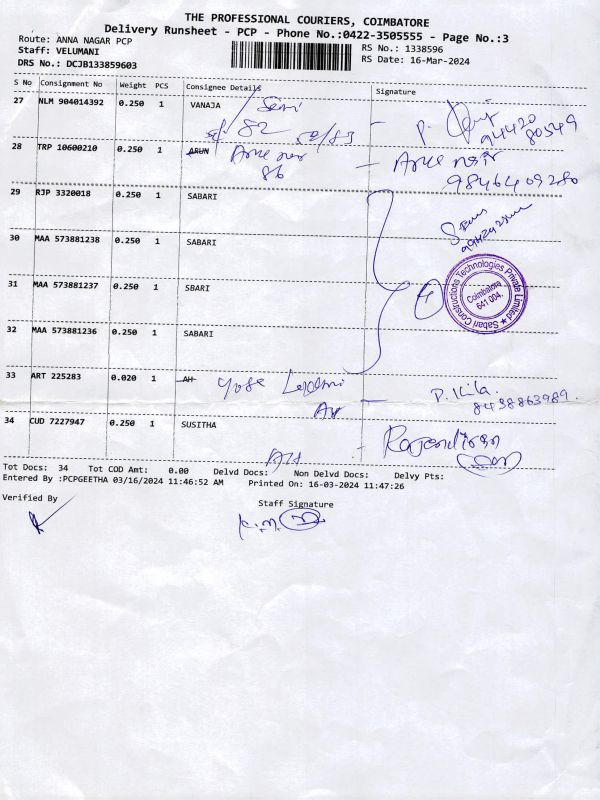 THE PROFESSIONAL COURIERS, COIMBATORE
Delivery Runsheet - PCP - Phone No.:0422-3505555 - Page No.:3
Route: ANNA NAGAR PCP
Staff: VELUMANI
RS No.: 1338596
DRS No.: DCJB133859603
RS Date: 16-Mar-2024
S No Consignment No Weight PCS Consignee Details Signature
27 NLM 904014392 0.250 1 VANAJA
82
94420
80549
28 TRP 10600210 0.250 1 ARUN
86
9846409280
29 RJP 3320018 0.250 1 SABARI
30 MAA 573881238 0.250 1 SABARI
31 MAA 573881237 0.250 1 SBARI
Sabari Constructions Technologies Private Limited
Coimbatore
641 004.
32 MAA 573881236 0.250 1 SABARI
33 ART 225283 0.020 1 AH
8438863989.
34 CUD 7227947 0.250 1 SUSITHA
Rajendiran
Tot Docs: 34 Tot COD Amt: 0.00 Delvd Docs: Non Delvd Docs: Delvy Pts:
Entered By :PCPGEETHA 03/16/2024 11:46:52 AM Printed On: 16-03-2024 11:47:26
Verified By
Staff Signature